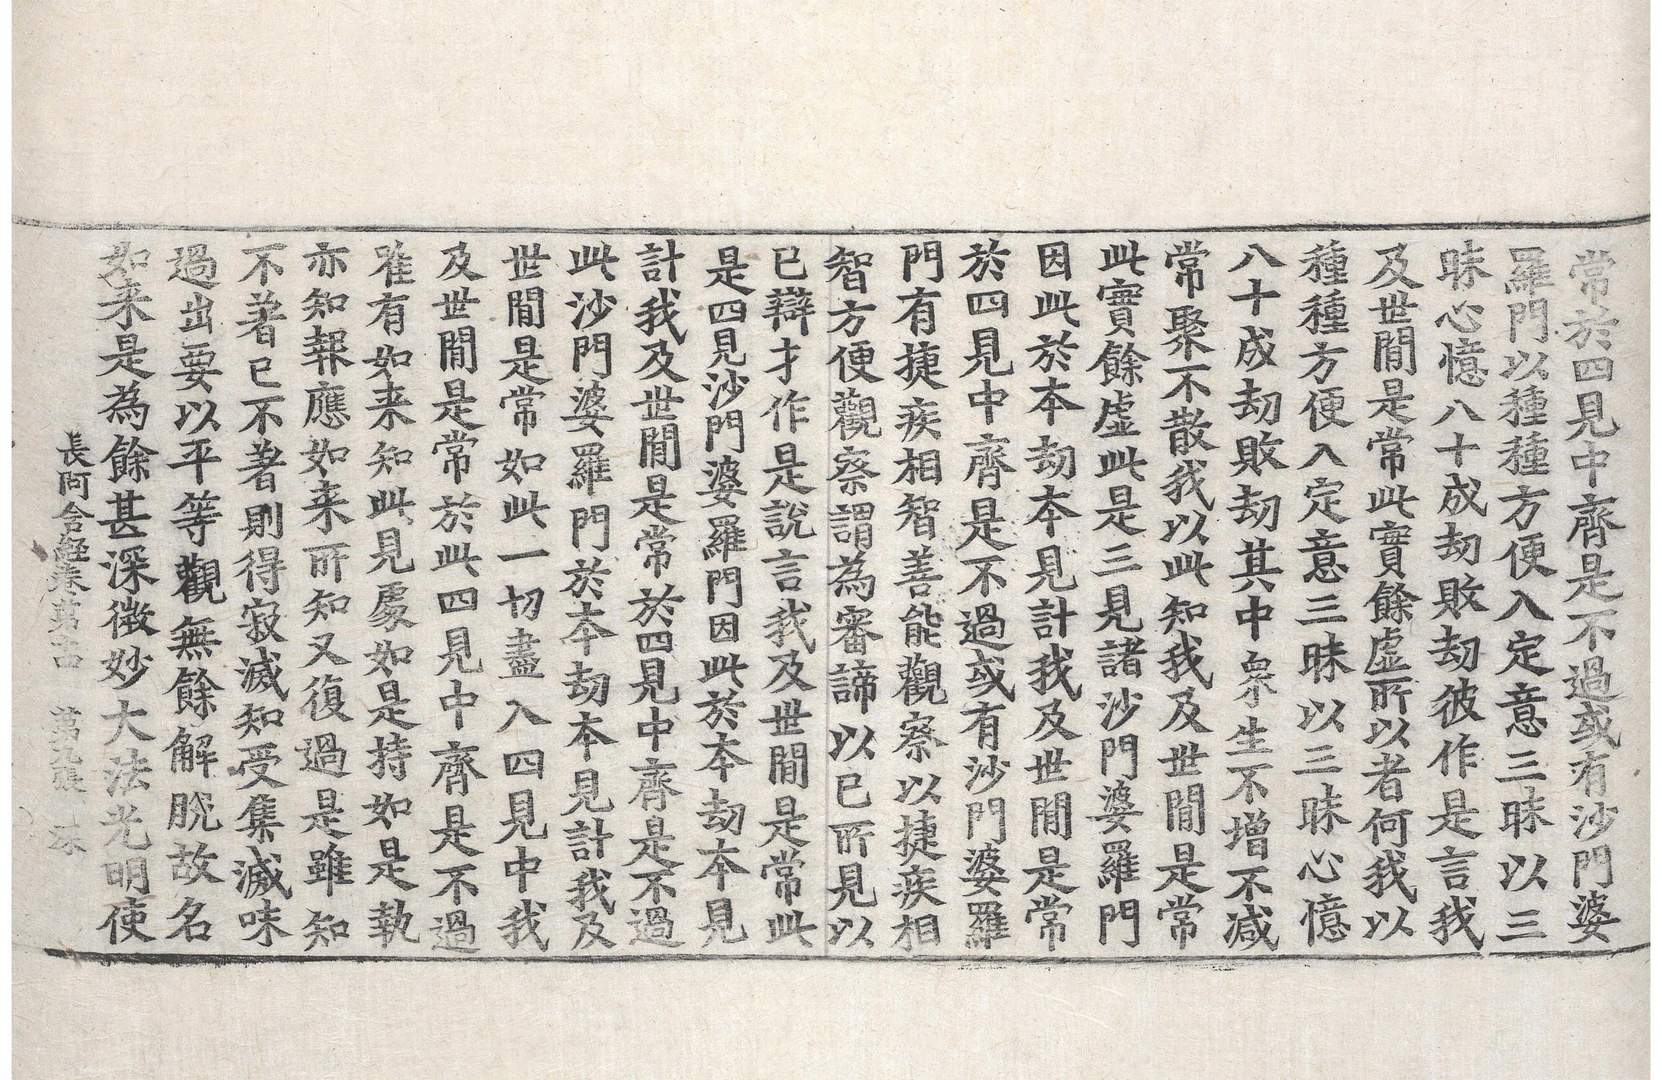 常於四見中齊是不過或有沙門婆
羅門以種種方便入定意三昧以三
昧心憶八十成劫敗劫彼作是言我
及世間是常此實餘虛所以者何我以
種種方便入定意三昧以三昧心憶
八十成劫敗劫其中衆生不增不減
常聚不散我以此知我及世間是常
此實餘虛此是三見諸沙門婆羅門
因此於本劫本見計我及世間是常
於四見中齊是不過或有沙門婆羅
門有捷疾相智善能觀察以捷疾相
智方便觀察謂為審諦以已所見以
已辯才作是說言我及世間是常此
是四見沙門婆羅門因此於本劫本見
計我及世間是常於四見中齊是不過
此沙門婆羅門於本劫本見計我及
世間是常如此一切盡入四見中我
及世間是常於此四見中齊是不過
唯有如来知此見處如是持如是執
亦知報應如来所知又復過是雖知
不著已不著則得寂滅知受集滅味
過出要以平等觀無餘解脫故名
如来是為餘甚深微妙大法光明使
長阿含經卷第十四 第九張 深